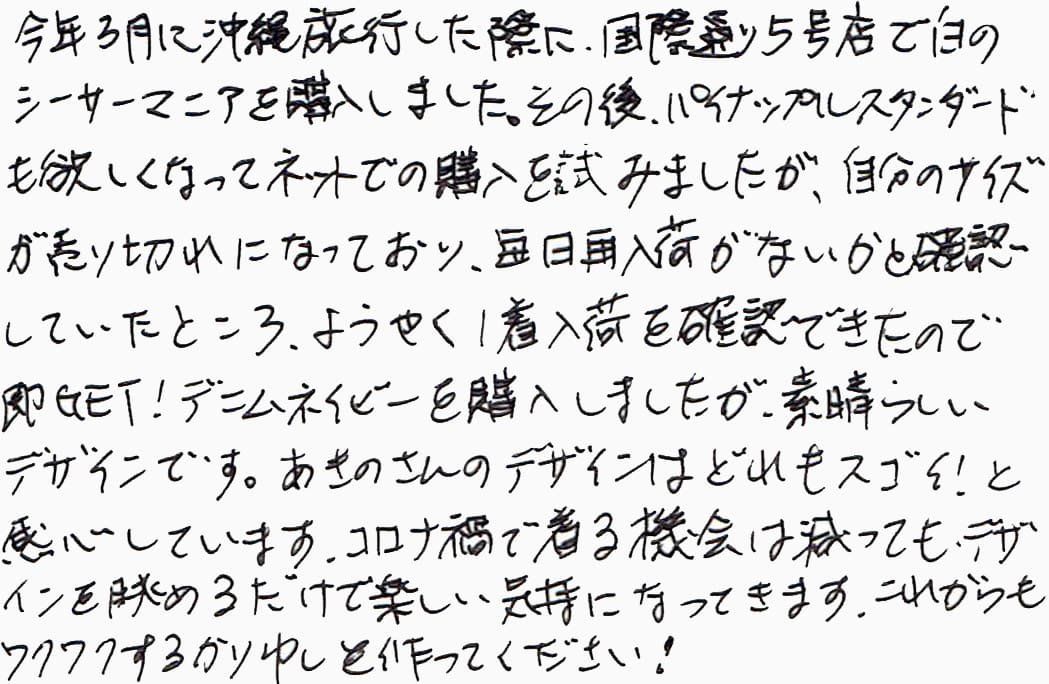 今年3月に沖縄旅行した際に、国際通り5号店で白の
シーサーマニアを購入しました。その後、パイナップルスタンダード
も欲しくなってネットでの購入を試みましたが、自分のサイズ
が売り切れになっており、毎日再入荷がないかと確認
していたところ、ようやく1着入荷を確認できたので
即GET!デニムネイビーを購入しましたが、素晴らしい
デザインです。あきのさんのデザインはどれもスゴイ!と
感心しています。コロナ禍で着る機会は減っても、デザ
インを眺めるだけで楽しい気持になってきます。これからも
ワクワクするかりゆしを作ってください!